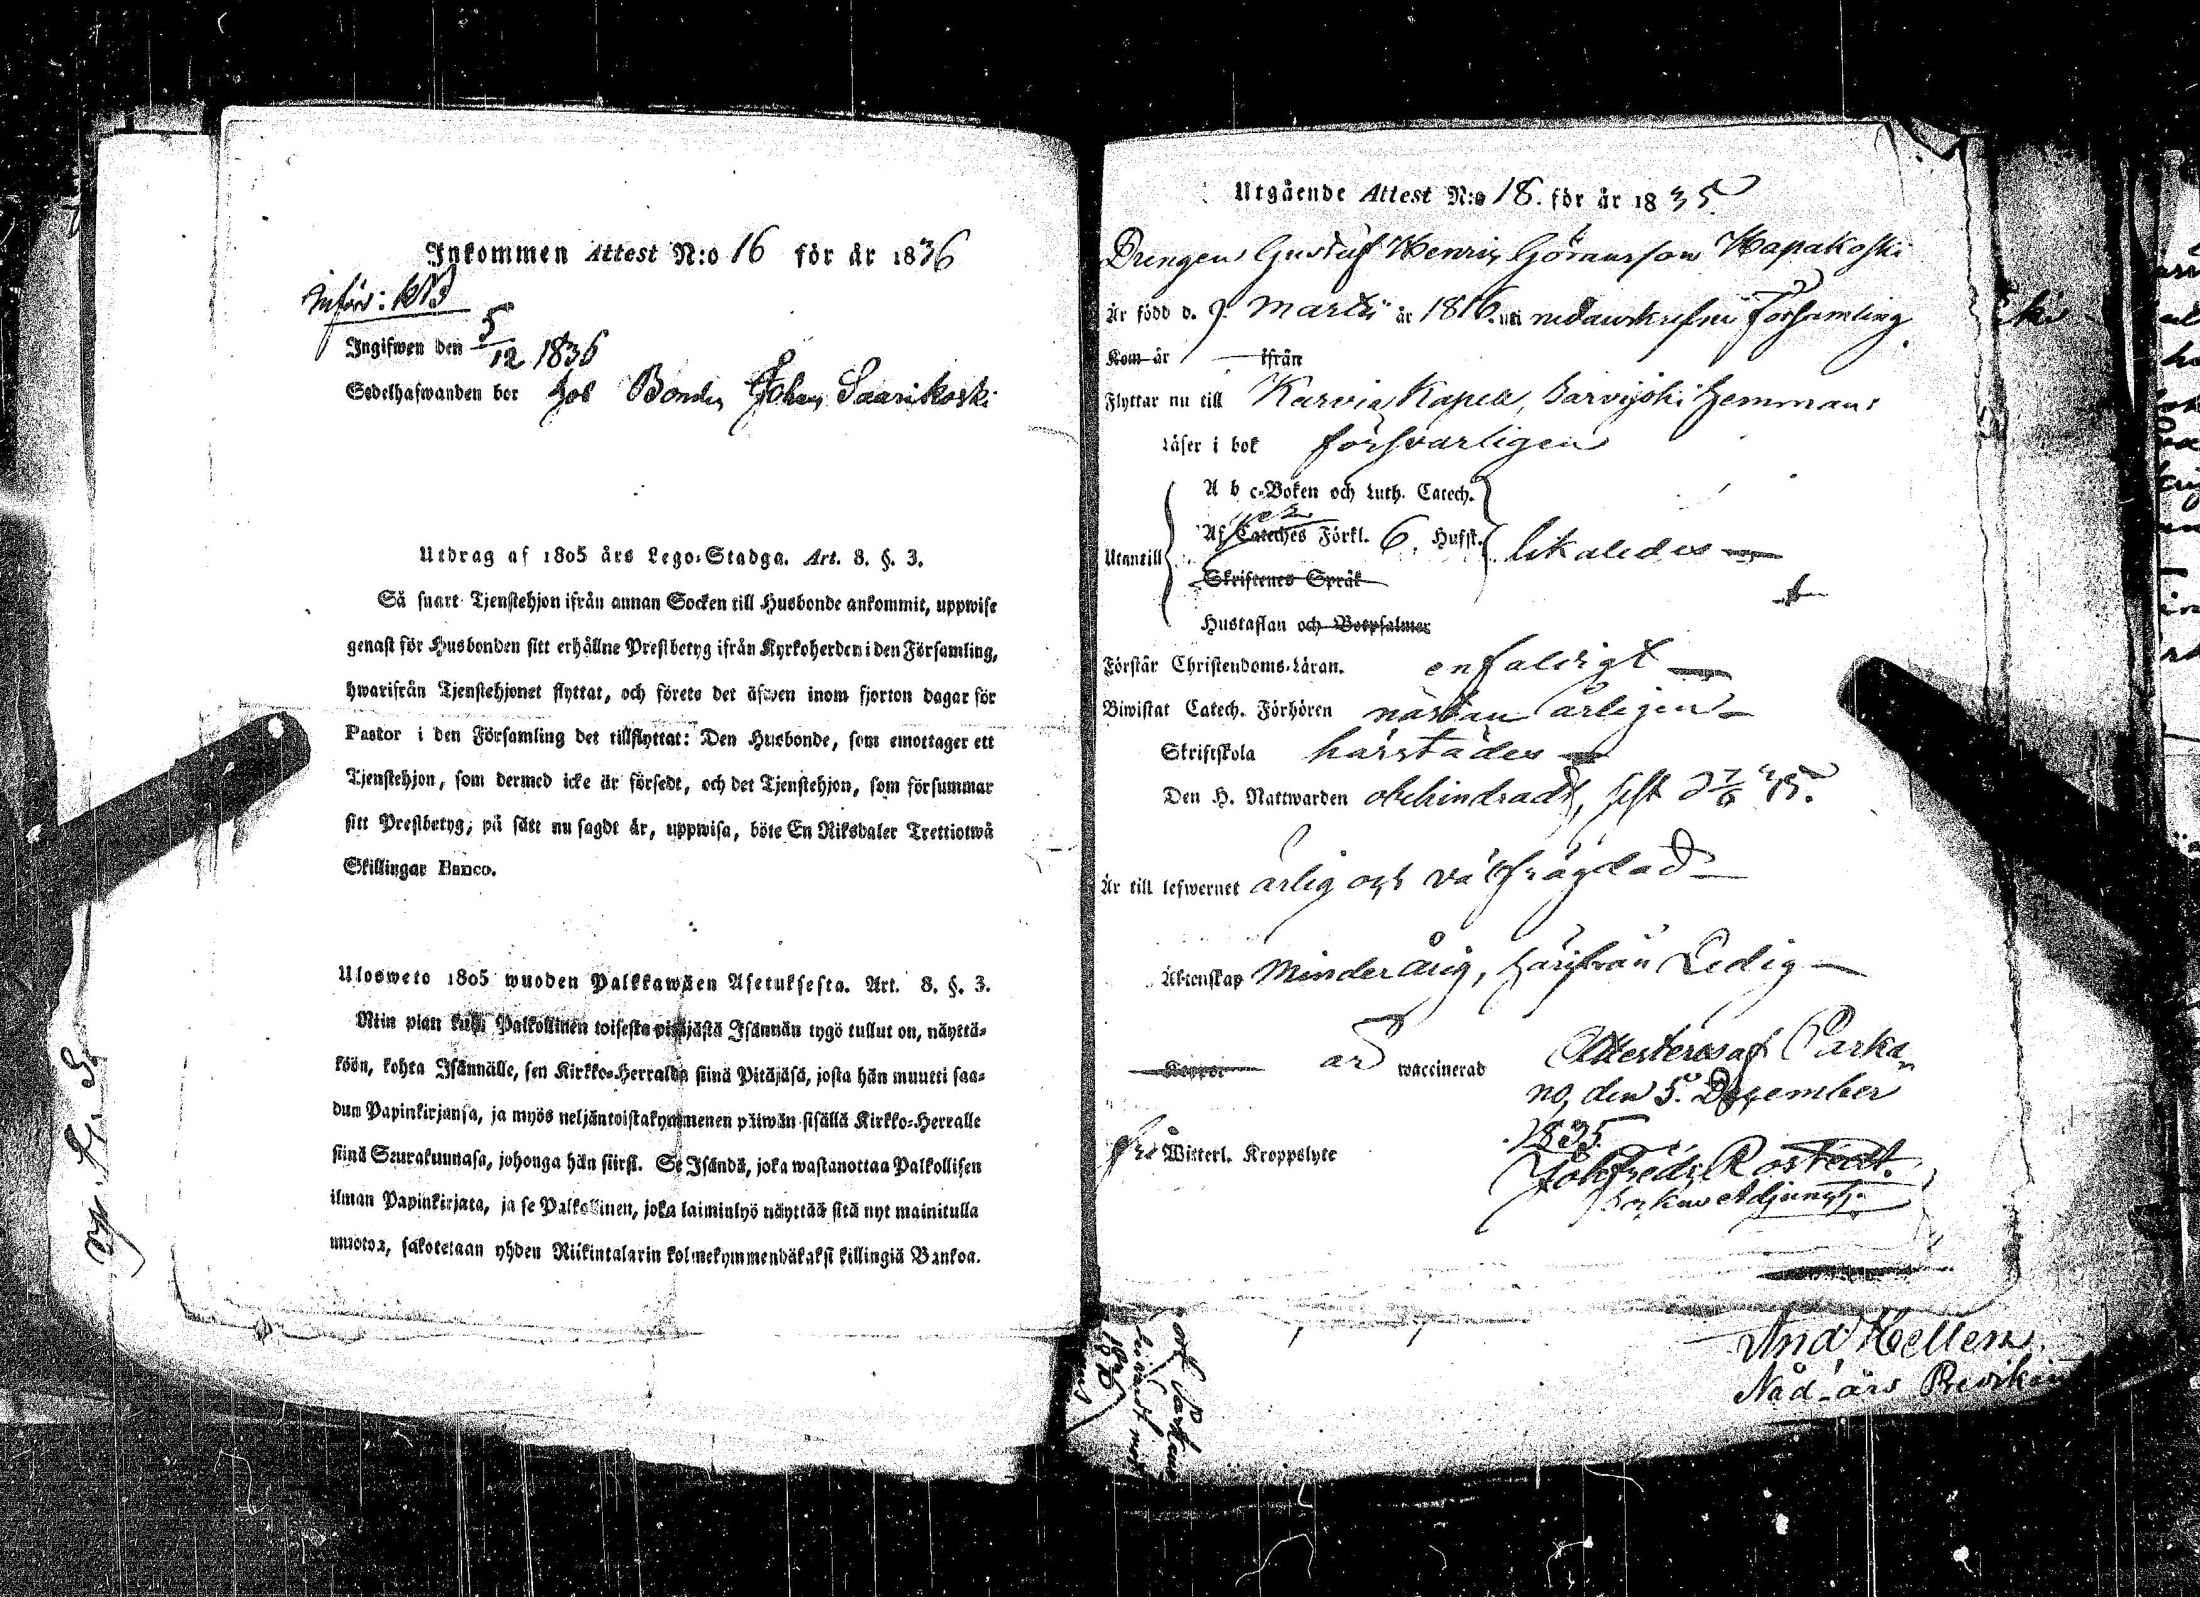 Inkommen Attest N:o 16 för år 1836
Införd: KB
Ingifwen den 5/12 1836
Sedelhafwanden bor hos Bonden Johan Saarikoski
Utdrag af 1805 års Lego-Stadga. Art. 8. §. 3.
Så snart Tjenstehjon ifrån annan Socken till Husbonde ankommit, uppwise
genast för Husbonden sitt erhållne Prestbetyg ifrån Kyrkoherden i den Församling,
hwarifrån Tjenstehjonet flyttat, och förete det äfwen inom fjorton dagar för
Pastor i den Församling det tillflyttat: Den Husbonde, som emottager ett
Tjenstehjon, som dermed icke är försedt, och det Tjenstehjon, som försummar
sitt Prestbetyg, på sätt nu sagdt är, uppwisa, böte En Riksdaler Trettiotwå
Skillingar Banco.
Ulosweto 1805 wuoden Palkkawäen Asetuksesta. Art. 8. §. 3.
Niin pian kuin Palkollinen toisesta pitäjästä Isännän tygö tullut on, näyttä-
köön, kohta Isännälle, sen Kirkko-Herralda siinä Pitäjäsä, josta hän muutti saa-
dun Papinkirjansa, ja myös neljäntoistakymmenen päiwän sisällä Kirkko-Herralle
siinä Seurakunnasa, johonga hän siirsi. Se Isändä, joka wastanottaa Palkollisen
ilman Papinkirjata, ja se Palkollinen, joka laiminlyö näyttää sitä nyt mainitulla
muotoa, sakotetaan yhden Riikintalarin kolmekymmendäkaksi killingiä Bankoa.
Utgående Attest N:o 18. för år 1835.
Drengen Gustaf Henric Göransson Hapakoski
Är född d. 9. Martii år 1816. uti nedanskrefne Församling
Kom år ifrån
Flyttar nu till Karvia Kapell, Sarvijoki Hemman:
Läser i bok försvarligen
A b c-Boken och Luth. Catech.
Utantill Af Cateches Förkl. 6. Hufst. likaledes
Skriftenes Språk
Hustaflan och Botpsalmer
Förstår Christendoms-Läran. enfaldigt
Biwistat Catech. Förhören nästan årligen
Skriftskola härstädes
Den H. Nattwarden obehindrad, sist d 7/6 35.
Är till lefwernet ärlig och välfrägdad
Äktenskap Minderårig, härifrån Ledig
Koppor är waccinerad Attesteras af Parka-
no, den 5. December
1835.
fri Witterl. Kroppslyte
Joh. Fredr. Rostedt.
Sockne Adjunct.
And Hellen